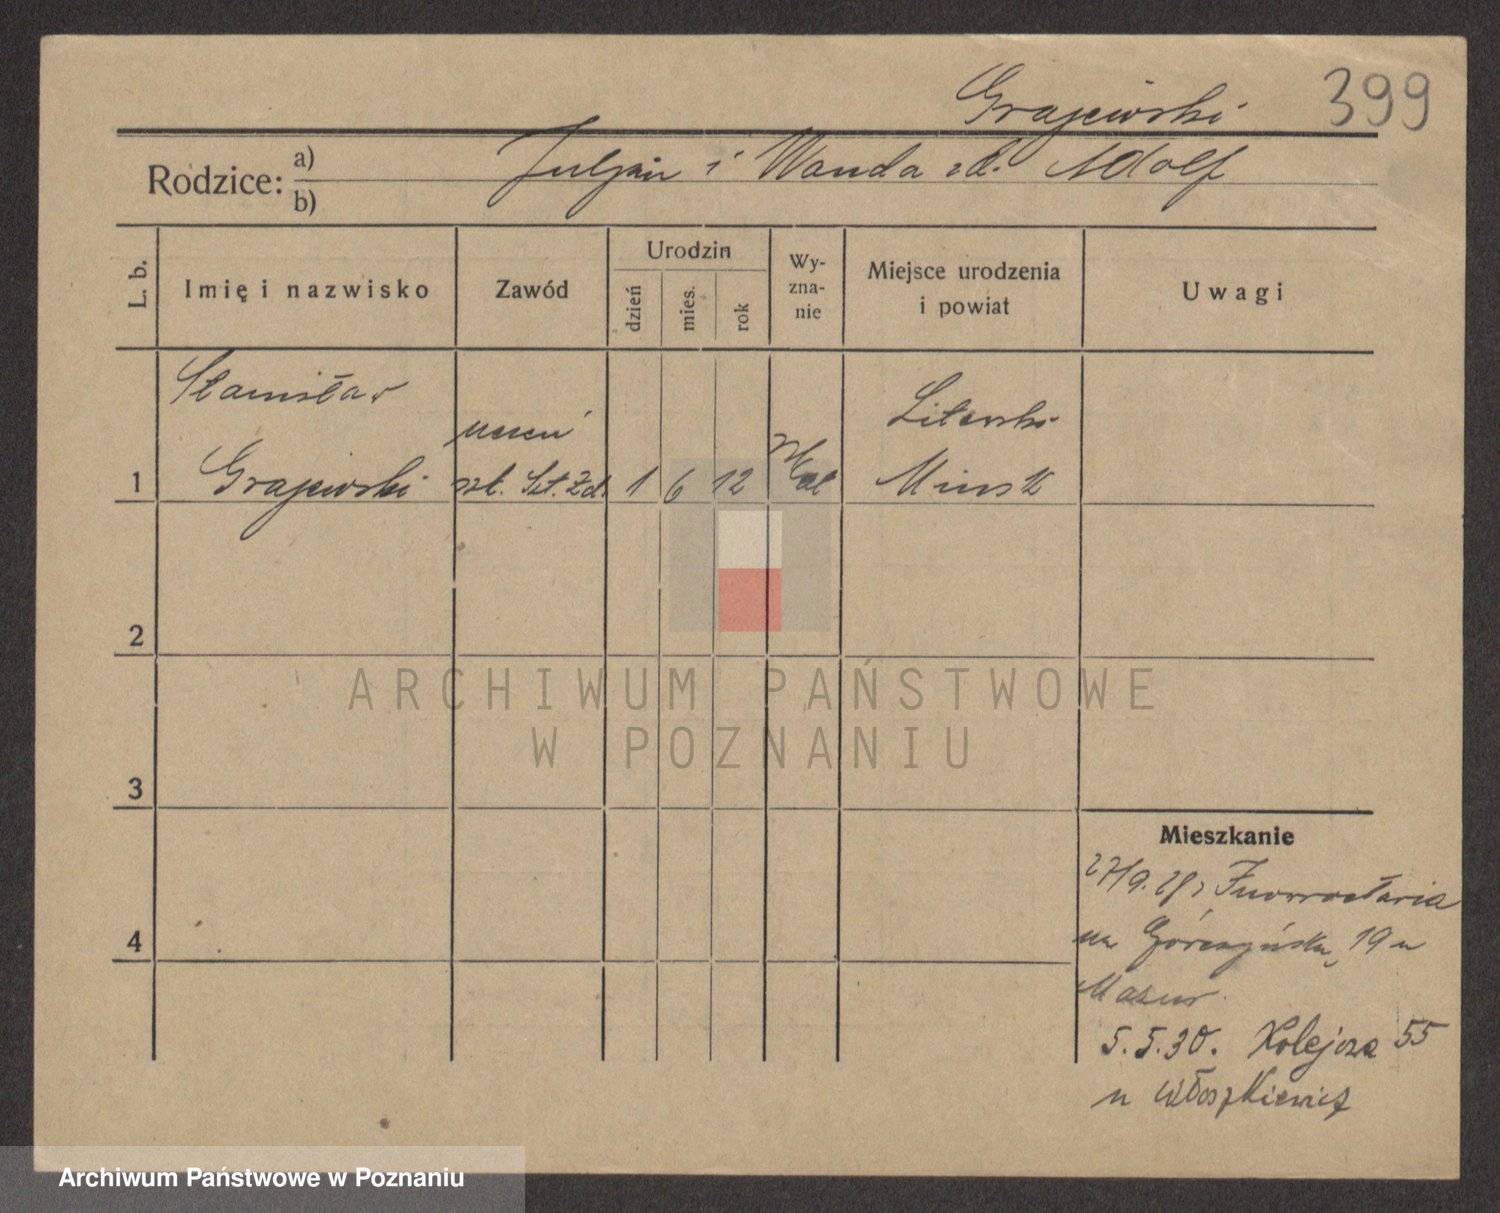 Grajewski 399
Rodzice: a) Juljan i Wanda zd. Adolf
b)
L. b.
Imię i nazwisko
Zawód
Urodzin
dzień
mies.
rok
Wy-
zna-
nie
Miejsce urodzenia
i powiat
Uwagi
Stanisław
Grajewski
uczeń
szt. Szt. Zd.
1 6 12
Litewski
Minsk
1
2
3
4
Mieszkanie
27/9.28 z Inowrocławia
na Górczyńską 19 u
Mazur
5.5.30. Kolejowa 55
u Włoszkiewicz
ARCHIWUM PAŃSTWOWE
W POZNANIU
Archiwum Państwowe w Poznaniu